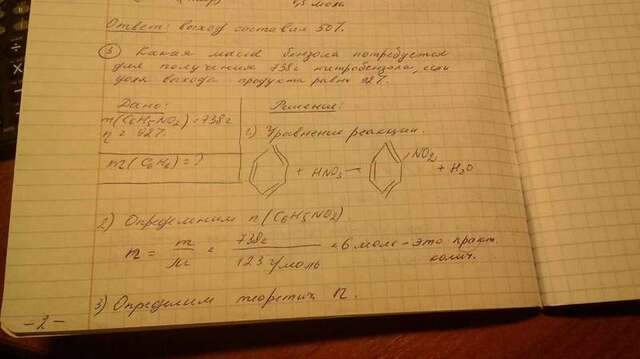 1,5 моль
Ответ: выход составил 50%.
③ Какая масса бензола потребуется
для получения 738г нитробензола, если
доля выхода продукта равна 92%.
Дано:
m(C6H5NO2)=738г
η = 92%.
m(C6H6) = ?
Решение:
1) Уравнение реакции.
+ HNO3 → NO2 + H2O
2) Определим n(C6H5NO2)
n = m/M = 738г/123г/моль = 6 моль - это практ.
колич.
3) Определим теоретич. n.
-2-